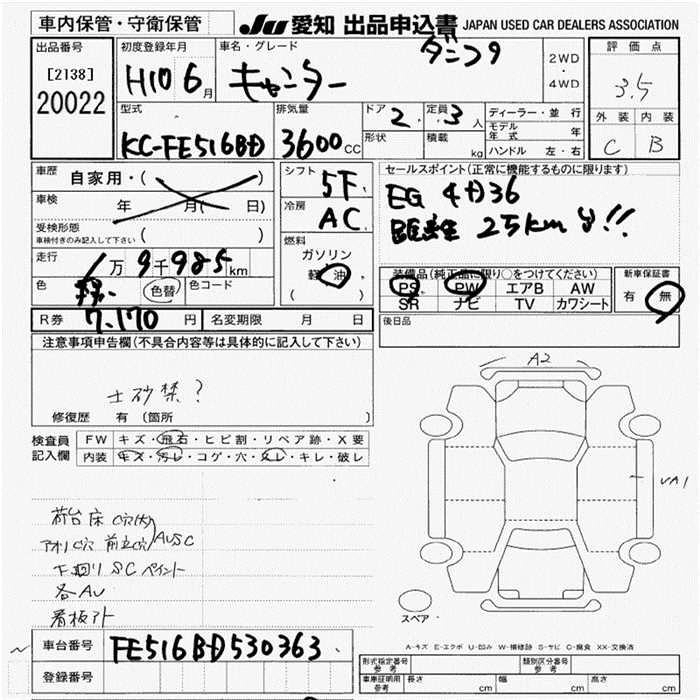 車内保管・守衛保管
JU 愛知 出品申込書 JAPAN USED CAR DEALERS ASSOCIATION
出品番号
[2138]
20022
初度登録年月
H10 6月
車名・グレード
ダンプ
キャンター
2WD
・
4WD
評価点
3.5
外装 内装
C B
型式
KC-FE516BD
排気量
3600cc
ドア 2
定員 3人
形状
積載 kg
ディーラー・並行
モデル年式 年
ハンドル 左・右
車歴 自家用・( )
車検 年 月( 日)
受検形態
車検付きのみ記入して下さい ( )
走行 1万9千985km
色
色替
色コード
シフト 5F
冷房 AC
燃料
ガソリン
軽油
( )
セールスポイント(正常に機能するものに限ります)
EG 4D36
距離 25km
装備品(純正品に限り○をつけてください)
PS PW エアB AW
SR ナビ TV カワシート
新車保証書
有 無
R券 7,170円
名変期限 月 日
後日品
注意事項申告欄(不具合内容等は具体的に記入して下さい)
土砂禁?
修復歴 有 (箇所 )
検査員記入欄
FW キズ・飛石・ヒビ割・リペア跡・X要
内装 キズ・汚レ・コゲ・穴・スレ・キレ・破レ
A2
VA1
荷台床C穴(大)
アオリC穴 前立穴 AUSC
下回りSCペイント
各AU
看板アト
スペア
A-キズ E-エクボ U-凹み W-補修跡 S-サビ C-腐食 XX-交換済
車台番号 FE516BD530363
登録番号
形式指定番号 参考
類別区分番号 参考
車庫証明用 参考 長さ cm 幅 cm 高さ cm